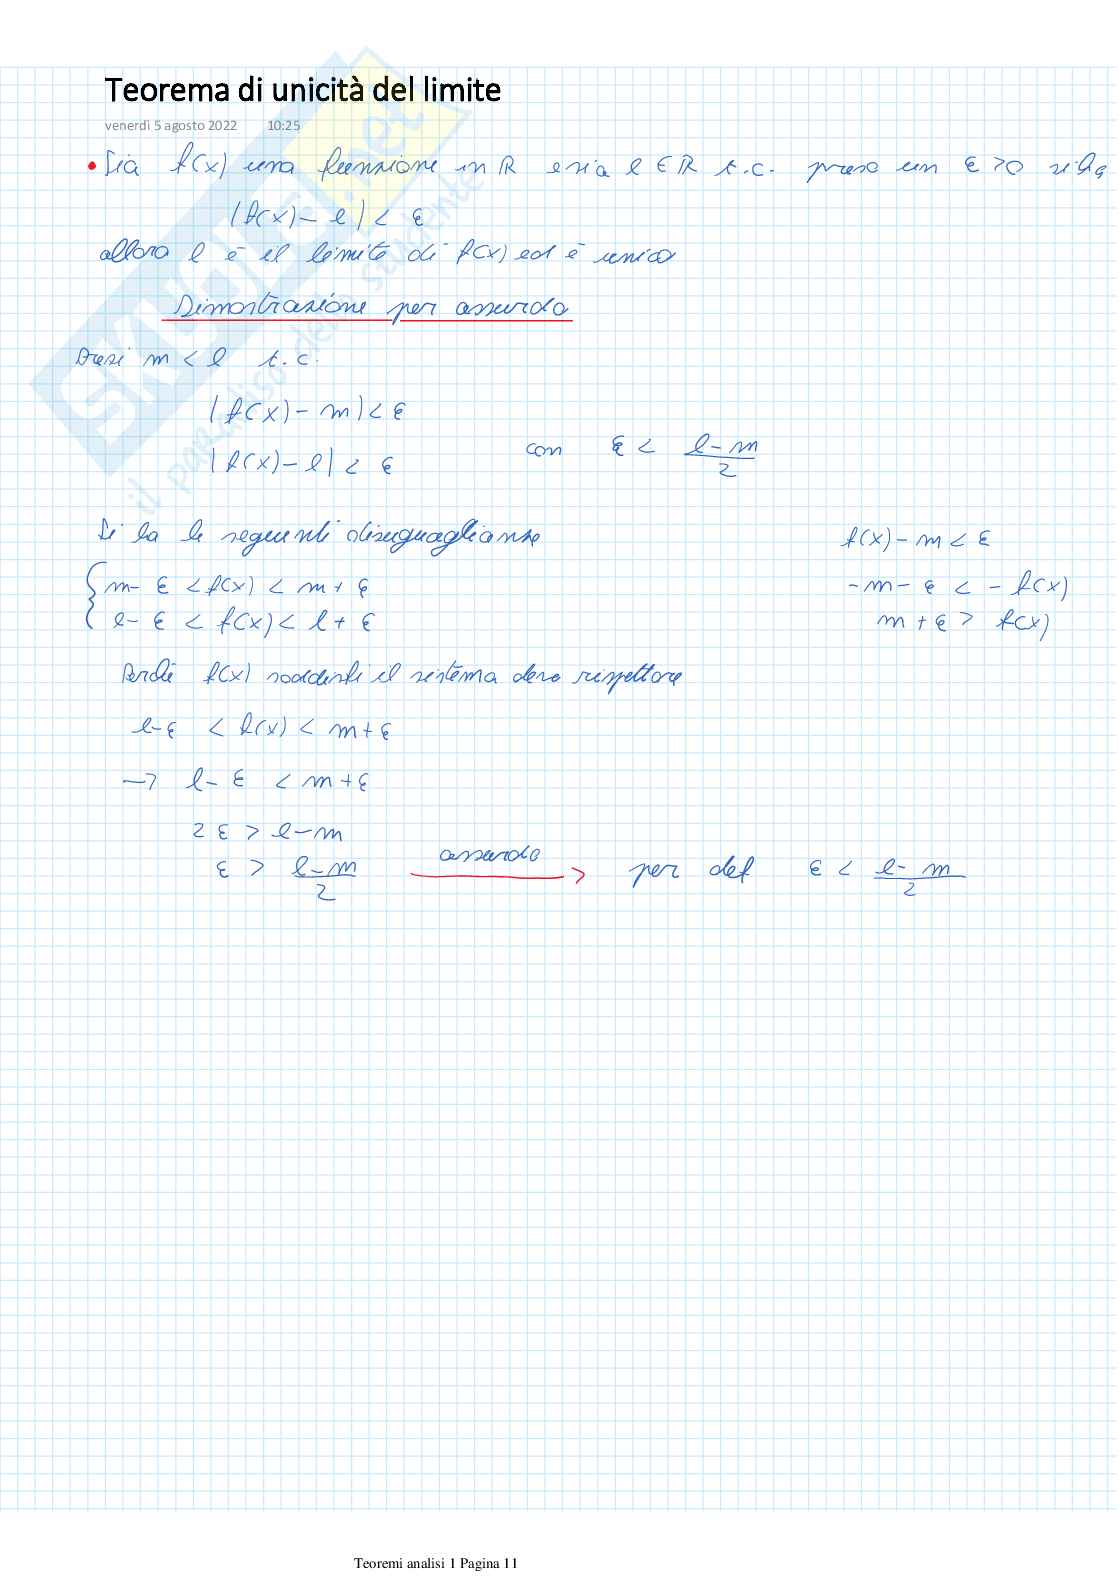 Teorema di unicità del limite
venerdì 5 agosto 2022 10:25
• Sia f(x) una funzione in ℝ e sia l ∈ ℝ t.c. preso un ε > 0 si ha
|f(x) - l| < ε
allora l è il limite di f(x) ed è unico
Dimostrazione per assurdo
m < l t.c.
|f(x) - m| < ε
|f(x) - l| < ε con ε < (l - m)/2
Si ha le seguenti disuguaglianze
f(x) - m < ε
{ m - ε < f(x) < m + ε
-m - ε < - f(x)
l - ε < f(x) < l + ε
m + ε > f(x)
Perché f(x) soddisfi il sistema deve rispettare
l - ε < f(x) < m + ε
→ l - ε < m + ε
2 ε > l - m
ε > (l - m)/2 assurdo → per def ε < (l - m)/2
Teoremi analisi 1 Pagina 11
SKUOLA.net
il paradiso dello studente